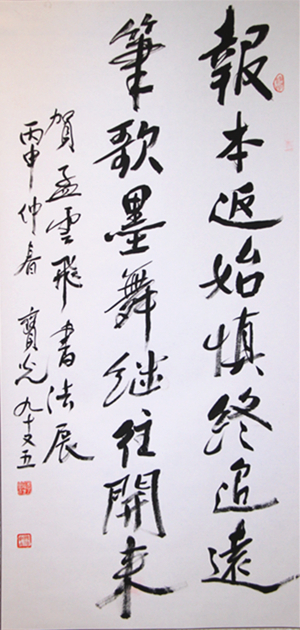 報本返始慎終追遠
筆歌墨舞繼往開來
賀孟雲飛書法展
丙申仲春 寶光九十又五